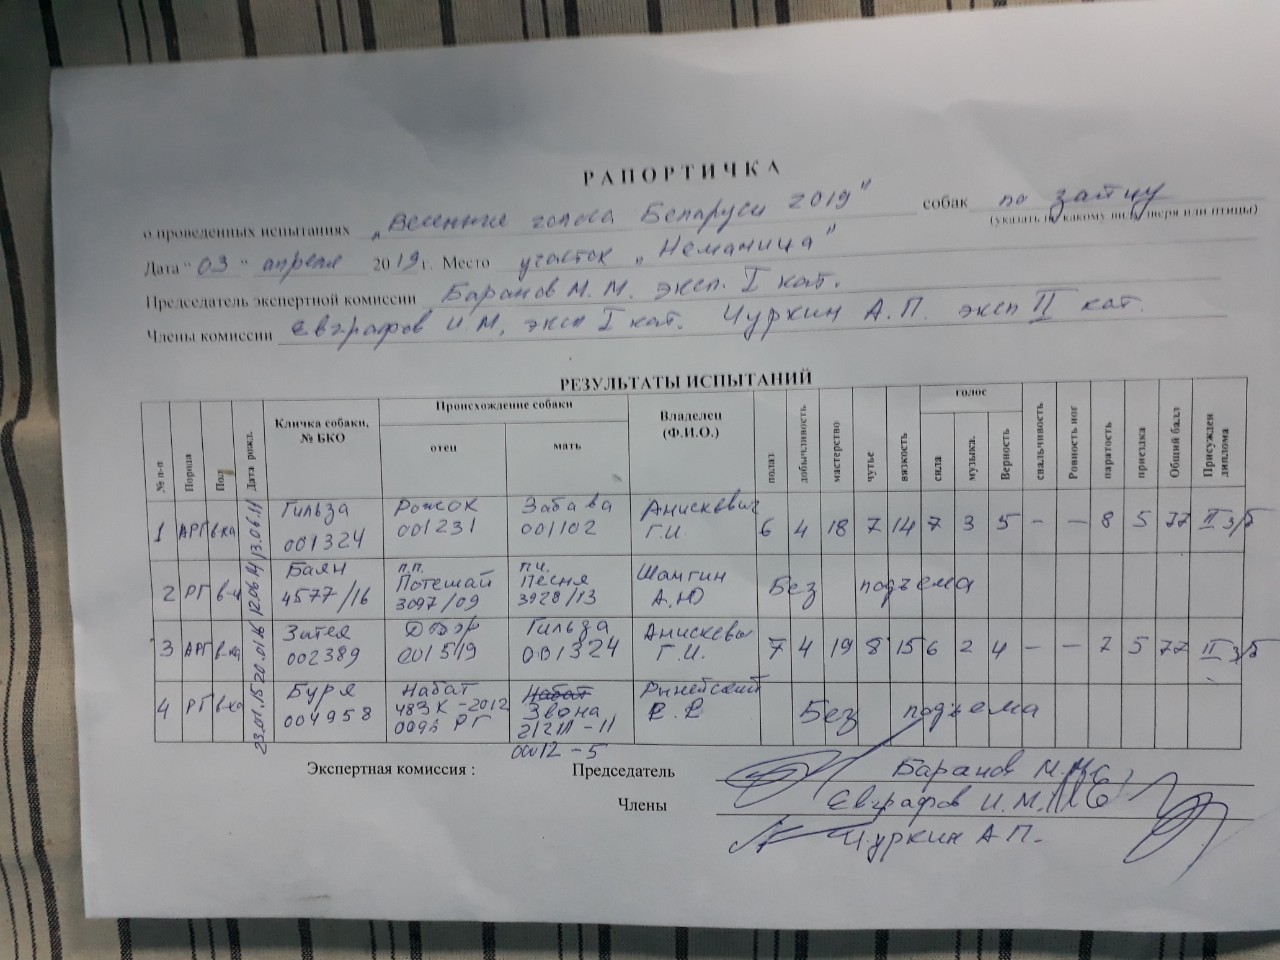 РАПОРТИЧКА
о проведенных испытаниях „Весенние голоса Беларуси 2019" собак по зайцу
(указать по какому виду зверя или птицы)
Дата "03" апреля 2019г. Место участок „Неманица"
Председатель экспертной комиссии Баранов М.М. эксп. I кат.
Члены комиссии Евграфов И.М, эксп I кат. Чуркин А.П. эксп II кат.
РЕЗУЛЬТАТЫ ИСПЫТАНИЙ
№ п-п Порода Пол Дата рожд. Кличка собаки, № БКО Происхождение собаки отец мать Владелец (Ф.И.О.) полаз добычливость мастерство чутье вязкость голос сила музыка. Верность свальчивость Ровность ног паратость приездка Общий балл Присужден диплома
1 АРГ в-ка 13.06.11 Гильза 001324 Рожок 001231 Забава 001102 Анискевич Г.И. 6 4 18 7 14 7 3 5 - - 8 5 77 II з/б
2 РГ 12.06.14 Баян 4577/16 п.п. Потешай 3097/09 п.ч. Песня 3928/13 Шамгин А.Ю Без подъема
3 АРГ в-ка 20.01.16 Затея 002389 001519 Гильза 001324 Г.И. 7 4 19 8 15 6 2 4 - - 7 5 77 II з/б
4 РГ в-ка 23.01.15 Буря 004958 Набат 483К-2012 РГ Набат Звона 00012-5 Без подъема
Экспертная комиссия : Председатель Баранов М.М.
Члены Евграфов И.М.
Чуркин А П.